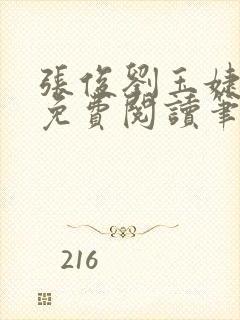 張俊劉玉婕
免費閱讀筆
216